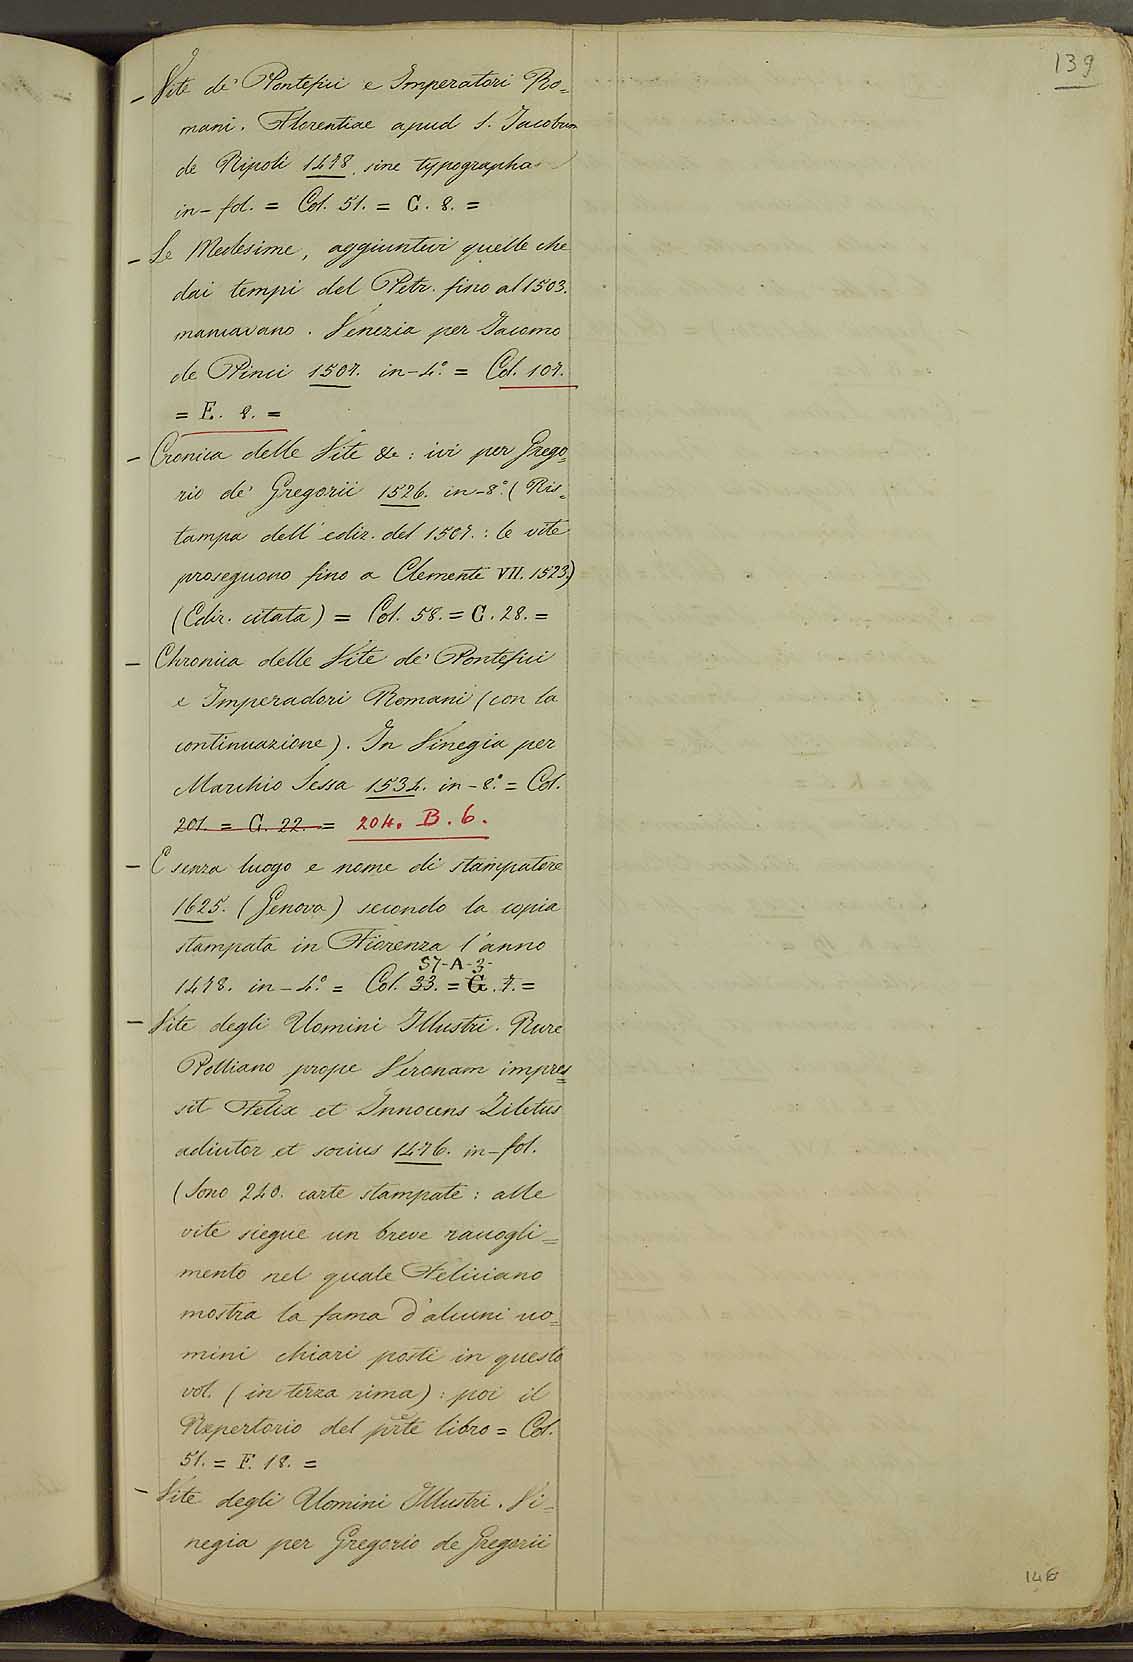 139
– Vite de' Pontefici e Imperatori Ro=
mani. Florentiae apud S. Jacobum
de Ripoli 1478. sine typographo
in-fol. = Col. 51. = C. 8. =
– Le Medesime, aggiuntevi quelle che
dai tempi del Petr. fino al 1503.
mancavano. Venezia per Jacomo
de Pinci 1507. in-4.° = Col. 107.
= E. 8. =
– Cronica delle Vite &c: ivi per Grego=
rio de' Gregorii 1526. in-8.° (Ris=
tampa dell' ediz. del 1507.: le vite
proseguono fino a Clemente VII. 1523.)
(Ediz. citata) = Col. 58. = C. 28. =
– Chronica delle Vite de' Pontefici
e Imperadori Romani (con la
continuazione). In Vinegia per
Marchio Sessa 1534. in-8.° = Col.
201. = C. 22. = 204. B. 6.
– E senza luogo e nome di stampatore
1625. (Genova) secondo la copia
stampata in Fiorenza l'anno
57-A-3-
1478. in-4.° = Col. 33. = G. 7. =
– Vite degli Uomini Illustri. Rure
Polliano prope Veronam impres=
sit Felix et Innocens Ziletus
adiutor et socius 1476. in-fol.
(Sono 240. carte stampate: alle
vite siegue un breve raccogli=
mento nel quale Feliciano
mostra la fama d'alcuni uo=
mini chiari posti in questo
vol. (in terza rima): poi il
Repertorio del pñte libro = Col.
51. = F. 18. =
– Vite degli Uomini Illustri. Vi=
negia per Gregorio de Gregorii
146